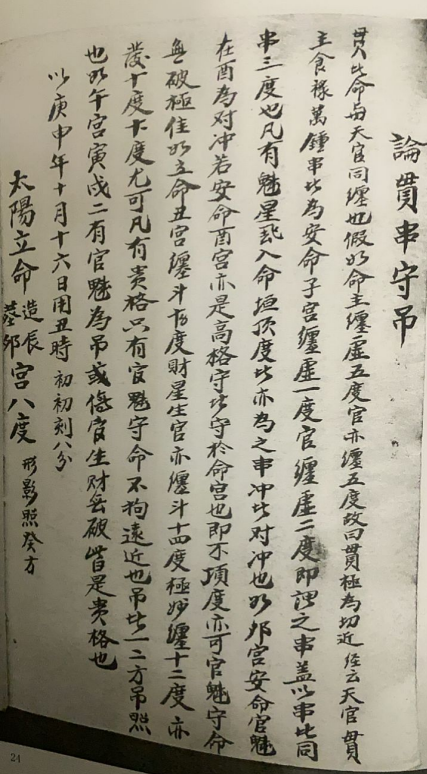 論貫串守吊
貫此命與天官同纏也假如命主纏虛五度官亦纏五度故曰貫極為切近經云天官貫
主食祿萬鍾串比為安命子宮纏虛一度官纏虛二度即謂之串蓋以串比同
串三度也凡有魁星飛入命垣頂度比亦為之串冲比对冲也如卯宮安命官魁
在酉為对冲若安命酉宮亦是高格守比守於命宮也即不項度亦可官魁守命
無破極佳如立命丑宮纏斗度財星生官亦纏斗十四度極妙纏十二度亦
發十度尤可凡有貴格只有官魁守命不拘遠近也吊比一二方吊照
也如午宮寅戌二有官魁為吊或傷官生財無破皆是貴格也
以庚申年十月十六日用丑時初初刻八分
太陽立命造辰墓卯宮八度形影照癸方
24